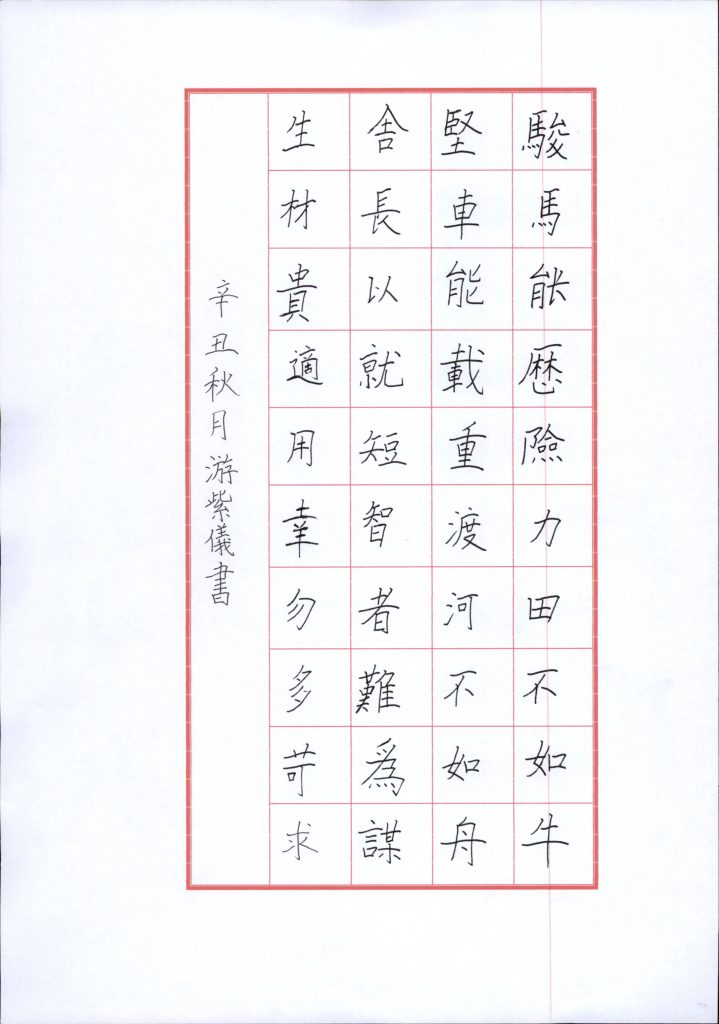 駿馬能歷險力田不如牛
堅車能載重渡河不如舟
舍長以就短智者難為謀
生材貴適用幸勿多苛求
辛丑秋月游紫儀書